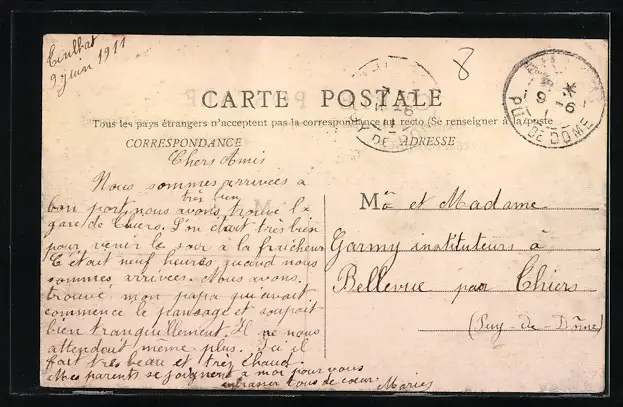 9 juin 1911
8
CARTE POSTALE
Tous les pays étrangers n'acceptent pas la correspondance au recto (Se renseigner à la poste
CORRESPONDANCE
ADRESSE
Chers Amis
Nous sommes arrivées a
très bien
bon port nous avons trouvé la
gare de Thiers. L'on était très bien
pour venir le soir à la fraicheur
C'était neuf heures quand nous
sommes arrivées. Nous avons
trouvé mon papa qui avait
commencé le et soupait
bien tranquillement. Il ne nous
attendait même plus. Ici il
fait très beau et très chaud.
Mes parents se joignent à moi pour vous
embrasser tous de cœur.
Maries
M et Madame
Garmy instituteurs à
Bellevue par Thiers
(Puy-de-Dôme)
9 -6
PUY DE DOME